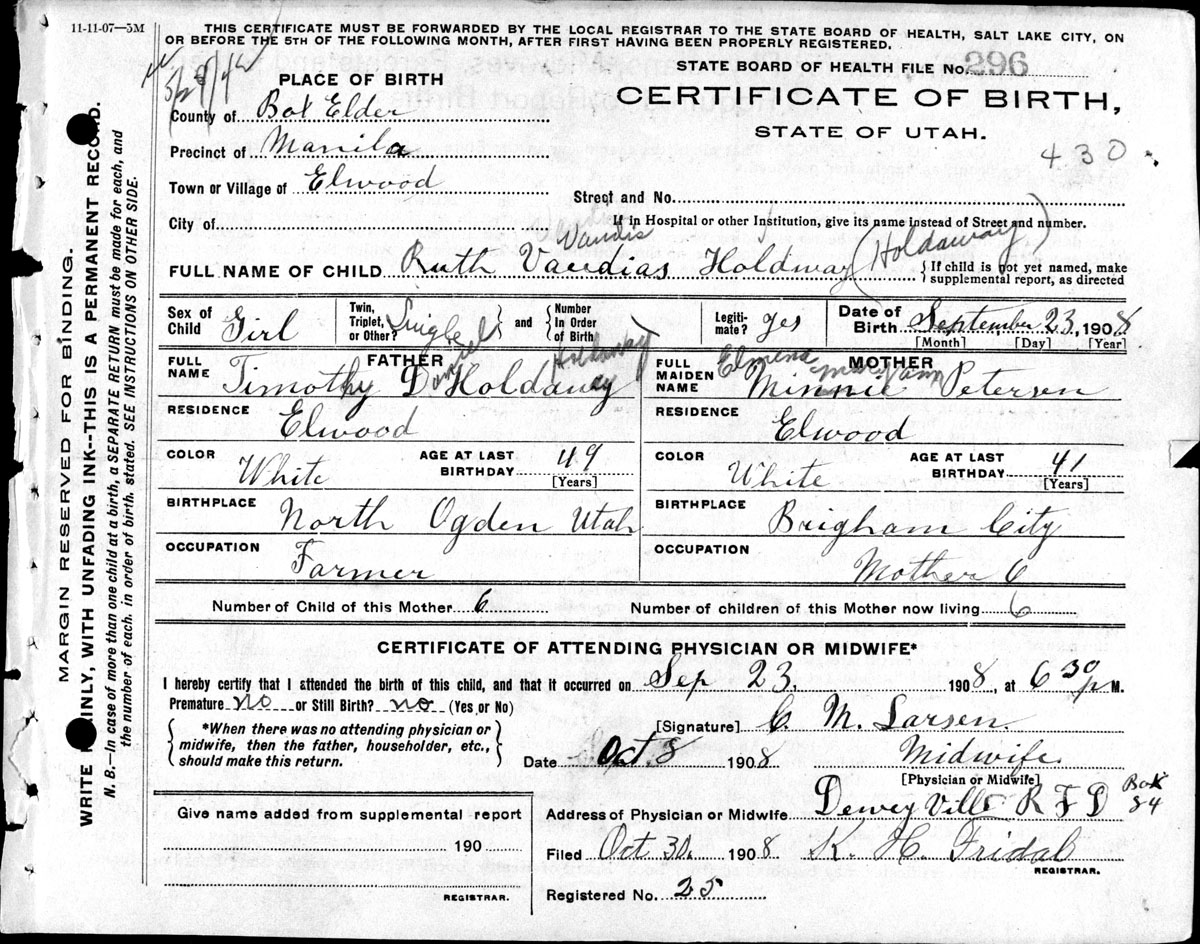 11-11-07—5M
THIS CERTIFICATE MUST BE FORWARDED BY THE LOCAL REGISTRAR TO THE STATE BOARD OF HEALTH, SALT LAKE CITY, ON
OR BEFORE THE 5TH OF THE FOLLOWING MONTH, AFTER FIRST HAVING BEEN PROPERLY REGISTERED.
STATE BOARD OF HEALTH FILE No. 296
CERTIFICATE OF BIRTH,
STATE OF UTAH.
430
PLACE OF BIRTH
County of Box Elder
Precinct of Manila
Town or Village of Elwood
Street and No.
City of
If in Hospital or other Institution, give its name instead of Street and number.
Vaudis
FULL NAME OF CHILD Ruth Vaudias Holdway (Holdaway)
{If child is not yet named, make
supplemental report, as directed
Sex of Child Girl
Twin, Triplet, or Other? Single and Number In Order of Birth
Legiti-mate? yes
Date of Birth September 23, 1908
[Month] [Day] [Year]
FATHER
FULL NAME Timothy D Holdaway
Daniel Holdaway
RESIDENCE Elwood
COLOR White AGE AT LAST BIRTHDAY 49 [Years]
BIRTHPLACE North Ogden Utah
OCCUPATION Farmer
MOTHER
FULL MAIDEN NAME Minnie Petersen
Elmena Mary Ann
RESIDENCE Elwood
COLOR White AGE AT LAST BIRTHDAY 41 [Years]
BIRTHPLACE Brigham City
OCCUPATION Mother 6
Number of Child of this Mother 6 Number of children of this Mother now living 6
CERTIFICATE OF ATTENDING PHYSICIAN OR MIDWIFE*
I hereby certify that I attended the birth of this child, and that it occurred on Sep 23. 1908, at 6 30 P M.
Premature no or Still Birth? no (Yes or No)
{*When there was no attending physician or
midwife, then the father, householder, etc.,
should make this return.}
[Signature] C. M. Larsen
Date Oct. 8 1908 Midwife
[Physician or Midwife]
Address of Physician or Midwife Dewey Ville R F D Box 84
Filed Oct 30. 1908 K. H. Fridal
REGISTRAR.
Registered No. 25
Give name added from supplemental report
190
REGISTRAR.
MARGIN RESERVED FOR BINDING.
WRITE PLAINLY, WITH UNFADING INK--THIS IS A PERMANENT RECORD.
N. B.—In case of more than one child at a birth, a SEPARATE RETURN must be made for each, and
the number of each, in order of birth, stated. SEE INSTRUCTIONS ON OTHER SIDE.